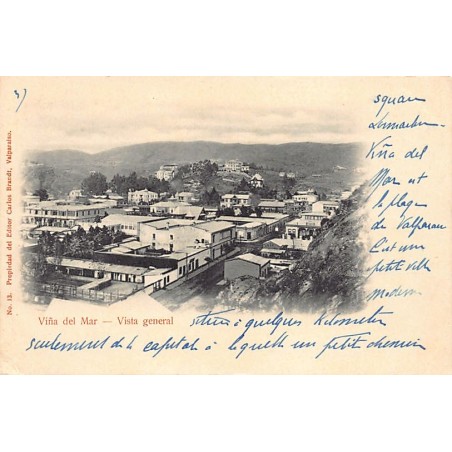 3)
squar
Lemarten
Viña del
Mar est
la plage
de Valparaiso
C'est une
petite ville
moderne
No. 13. Propiedad del Editor Carlos Brandt, Valparaiso.
Viña del Mar — Vista general
située à quelques kilometres
seulement de la capitale à laquelle un petit chemin